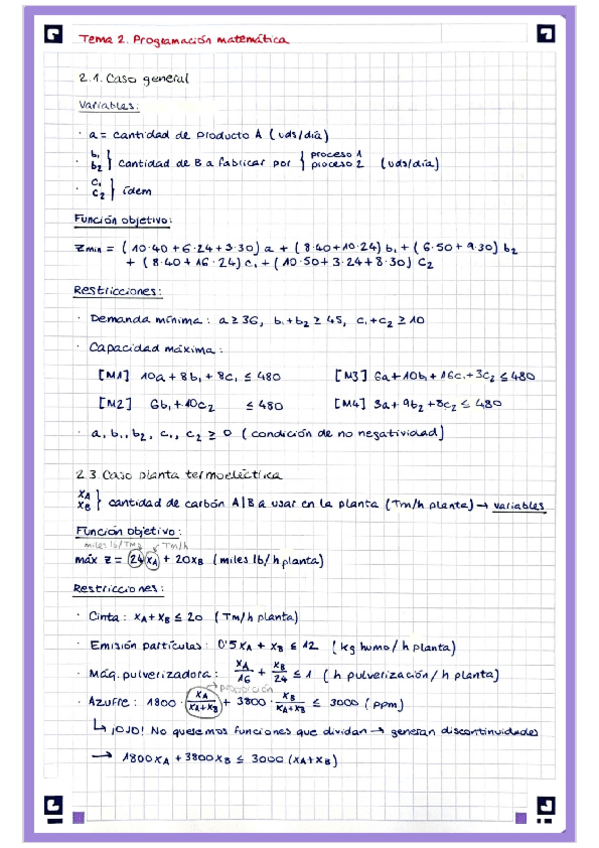 Tema 2. Programación matemática
2.1. Caso general
Variables:
· a = cantidad de producto A (uds/día)
· b₁ b₂ } cantidad de B a fabricar por { proceso 1 proceso 2 (uds/día)
· c₁ c₂ } ídem
Función objetivo:
Zmín = (10·40 + 6·24 + 3·30) a + (8·40 + 10·24) b₁ + (6·50 + 9·30) b₂
+ (8·40 + 16·24) c₁ + (10·50 + 3·24 + 8·30) c₂
Restricciones:
· Demanda mínima: a ≥ 36, b₁ + b₂ ≥ 45, c₁ + c₂ ≥ 10
· Capacidad máxima:
[M1] 10a + 8b₁ + 8c₁ ≤ 480 [M3] 6a + 10b₁ + 16c₁ + 3c₂ ≤ 480
[M2] 6b₁ + 10c₂ ≤ 480 [M4] 3a + 9b₂ + 8c₂ ≤ 480
· a, b₁, b₂, c₁, c₂ ≥ 0 (condición de no negatividad)
2.3. Caso planta termoeléctrica
xA xB } cantidad de carbón A|B a usar en la planta (Tm/h planta) → variables
Función objetivo:
miles lb/Tm Tm/h
máx z = 24xA + 20xB (miles lb/h planta)
Restricciones:
· Cinta: xA + xB ≤ 20 (Tm/h planta)
· Emisión partículas: 0'5xA + xB ≤ 12 (kg humo/h planta)
· Máq. pulverizadora: xA/16 + xB/24 ≤ 1 (h pulverización/h planta)
→ proporción
· Azufre: 1800 · xA/(xA+xB) + 3800 · xB/(xA+xB) ≤ 3000 (ppm)
↳ ¡OJO! No queremos funciones que dividan → generan discontinuidades
→ 1800xA + 3800xB ≤ 3000 (xA+xB)